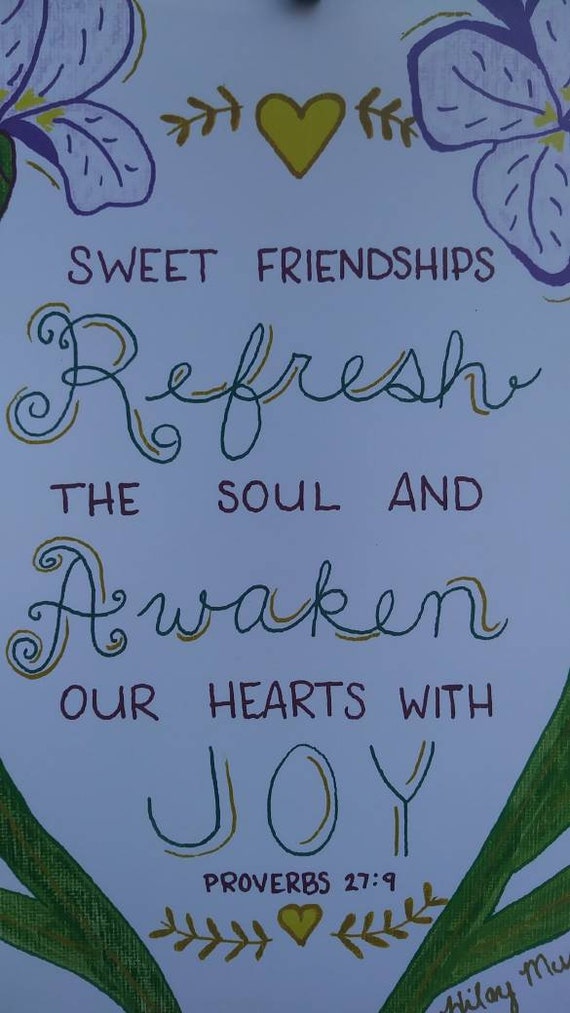 SWEET FRIENDSHIPS
Refresh
THE SOUL AND
Awaken
OUR HEARTS WITH
JOY
PROVERBS 27:9